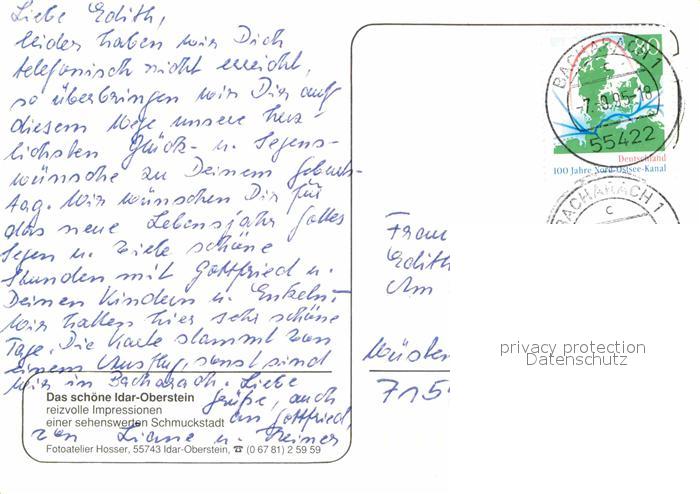 Liebe Edith,
leider haben wir Dich
telefonisch nicht erreicht,
so überbringen wir Dir auf
diesem Wege unsere herz-
lichsten Glück- u. Segens-
wünsche zu Deinem Geburts-
tag. Wir wünschen Dir für
das neue Lebensjahr Gottes
Segen u. viele schöne
Stunden mit Gottfried u.
Deinen Kindern u. Enkeln.
Wir hatten hier sehr schöne
Tage. Die Karte stammt von
einem Ausflug, sonst sind
wir in Bacharach. Liebe
Grüße, auch
an Gottfried,
von Liane u. Reiner
Das schöne Idar-Oberstein
reizvolle Impressionen
einer sehenswerten Schmuckstadt
Fotoatelier Hosser, 55743 Idar-Oberstein, ☎ (0 67 81) 2 59 59
80
BACHARACH 1
c
-7.-9.95-18
55422
Deutschland
100 Jahre Nord-Ostsee-Kanal
BACHARACH 1
c
Frau
Edith
Am
Müsten
715
privacy protection
Datenschutz